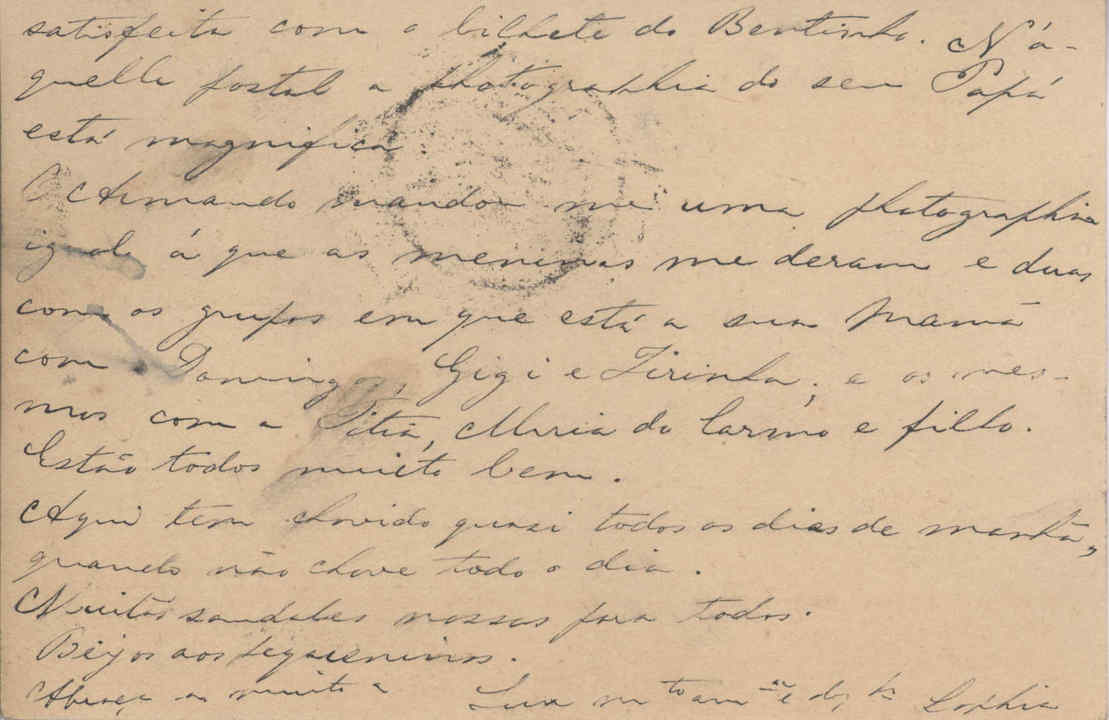 satisfeita com o bilhete do Bentinho. N'a-
quelle postal a photographia do seu Papá
está magnifica.
O Armando mandou me uma photographia
igual á que as meninas me deram e duas
com os grupos em que está a sua Mamã
com Domingos, Gigi e Zirinha; e os mes-
mos com a Titia, Maria do Carmo e filho.
Estão todos muito bem.
Aqui tem chovido quasi todos os dias de manhã,
quando não chove todo o dia.
Muitas saudades nossas para todos.
Beijos aos pequeninos.
Abraça-a muito a Sua m.to am.ga e
Sophia